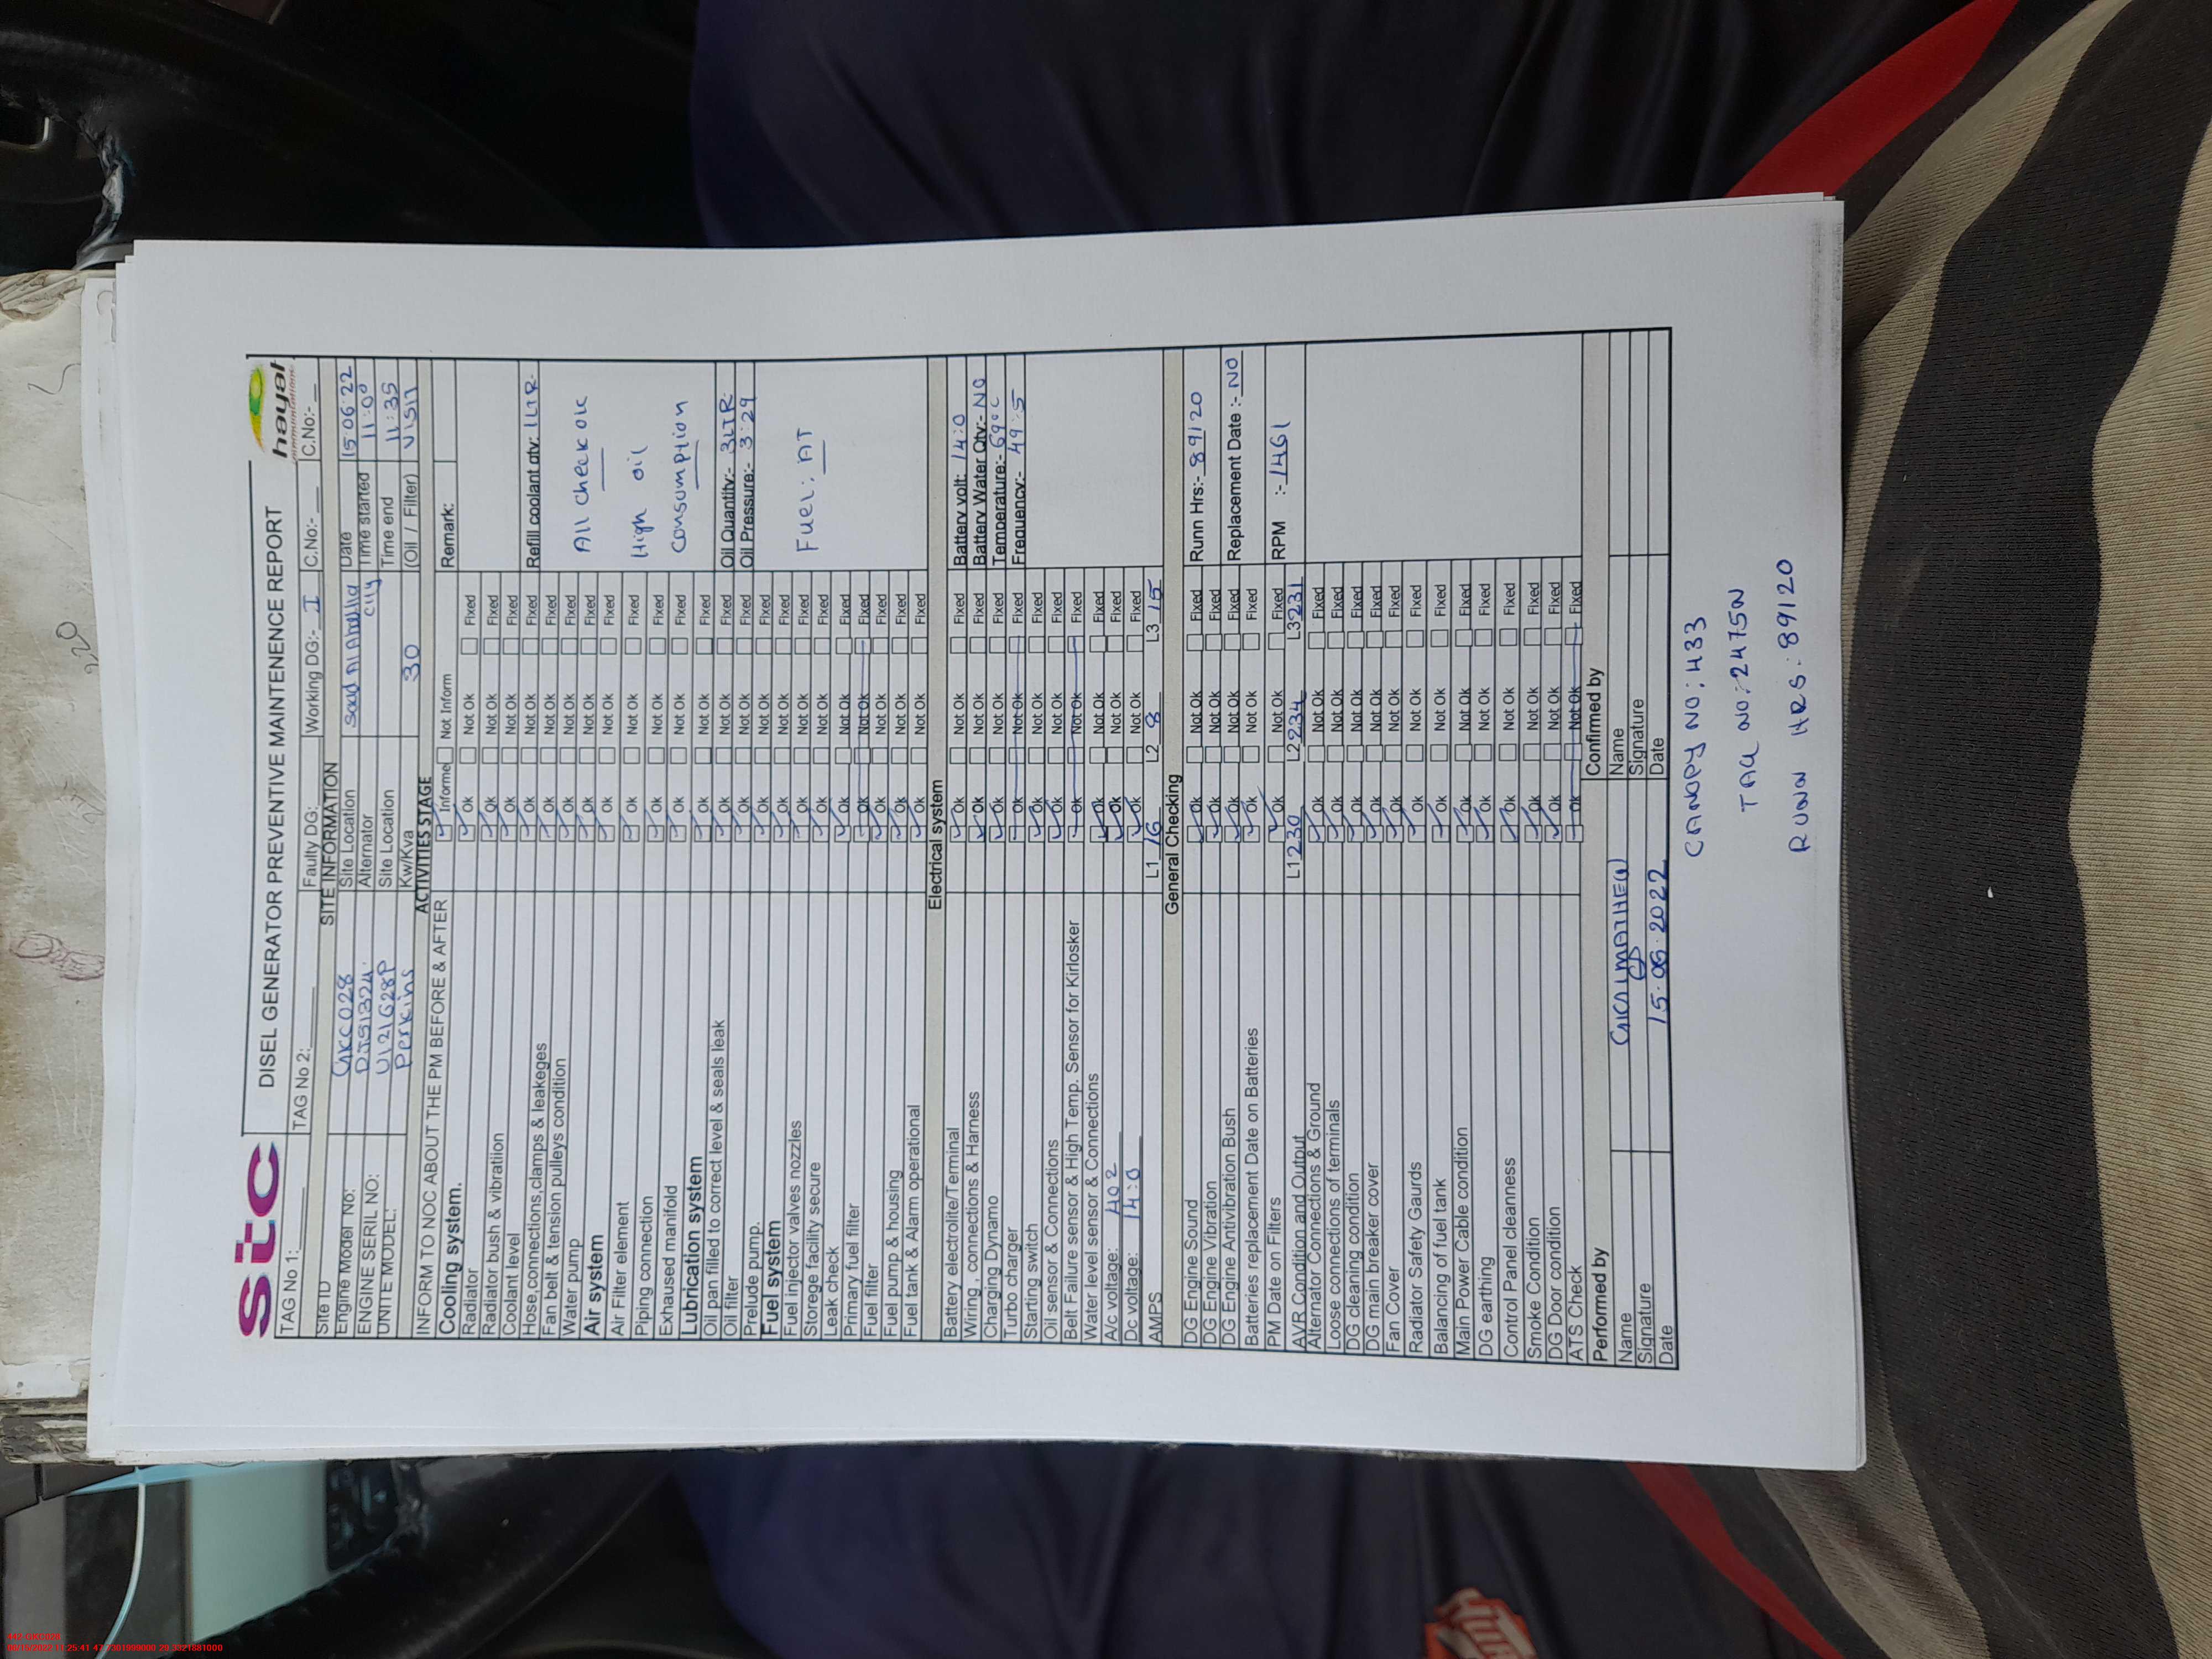 stc
DISEL GENERATOR PREVENTIVE MAINTENENCE REPORT
hayat
communications
TAG No 1:______ TAG No 2:______ Faulty DG:______ Working DG:- I C.No:- __ C.No:- __
SITE INFORMATION
Site ID GKC028 Site Location Saad Al Abdulla city Date 15.06.22
Engine Model No: DJ51324. Alternator Time started 11:00
ENGINE SERIL NO: U121628P Site Location Time end 11:35
UNITE MODEL: Perkins Kw/Kva 30 (Oil / Filter) VISIT
ACTIVITIES STAGE
INFORM TO NOC ABOUT THE PM BEFORE & AFTER Informe Not Inform Remark:
Cooling system.
Radiator Ok Not Ok Fixed
Radiator bush & vibratiion Ok Not Ok Fixed
Coolant level Ok Not Ok Fixed
Hose,connections,clamps & leakeges Ok Not Ok Fixed Refill coolant qty: 1LTR
Fan belt & tension pulleys condition Ok Not Ok Fixed
Water pump Ok Not Ok Fixed
All check ok
Air system
Air Filter element Ok Not Ok Fixed
Piping connection Ok Not Ok Fixed
High oil
Exhaused manifold Ok Not Ok Fixed
Consumption
Lubrication system
Oil pan filled to correct level & seals leak Ok Not Ok Fixed
Oil filter Ok Not Ok Fixed Oil Quantity:- 3LTR
Prelude pump. Ok Not Ok Fixed Oil Pressure:- 3.29
Fuel system
Fuel injector valves nozzles Ok Not Ok Fixed
Storege facility secure Ok Not Ok Fixed
Fuel: AT
Leak check Ok Not Ok Fixed
Primary fuel filter Ok Not Ok Fixed
Fuel filter Ok Not Ok Fixed
Fuel pump & housing Ok Not Ok Fixed
Fuel tank & Alarm operational Ok Not Ok Fixed
Electrical system
Battery electrolite/Terminal Ok Not Ok Fixed Battery volt: 14:0
Wiring , connections & Harness Ok Not Ok Fixed Battery Water Qty:- NO
Charging Dynamo Ok Not Ok Fixed Temperature:- 69°C
Turbo charger Ok Not Ok Fixed Frequency:- 49:5
Starting switch Ok Not Ok Fixed
Oil sensor & Connections Ok Not Ok Fixed
Belt Failure sensor & High Temp. Sensor for Kirlosker Ok Not Ok Fixed
Water level sensor & Connections Ok Not Ok Fixed
A/c voltage: 402 Ok Not Ok Fixed
Dc voltage: 14:0 Ok Not Ok Fixed
AMPS L1 16 L2 8 L3 15
General Checking
DG Engine Sound Ok Not Ok Fixed Runn Hrs:- 89120
DG Engine Vibration Ok Not Ok Fixed
DG Engine Antivibration Bush Ok Not Ok Fixed Replacement Date :- NO
Batteries replacement Date on Batteries Ok Not Ok Fixed
PM Date on Filters Ok Not Ok Fixed RPM :- 1461
AVR Condition and Output L1 230 L2 234 L3 231
Alternator Connections & Ground Ok Not Ok Fixed
Loose connections of terminals Ok Not Ok Fixed
DG cleaning condition Ok Not Ok Fixed
DG main breaker cover Ok Not Ok Fixed
Fan Cover Ok Not Ok Fixed
Radiator Safety Gaurds Ok Not Ok Fixed
Balancing of fuel tank Ok Not Ok Fixed
Main Power Cable condition Ok Not Ok Fixed
DG earthing Ok Not Ok Fixed
Control Panel cleanness Ok Not Ok Fixed
Smoke Condition Ok Not Ok Fixed
DG Door condition Ok Not Ok Fixed
ATS Check Ok Not Ok Fixed
Performed by Confirmed by
Name Name
Signature Signature
Date 15.06.2022 Date
CANOPY NO: 433
TAG NO: 2475N
RUNN HRS: 89120
220